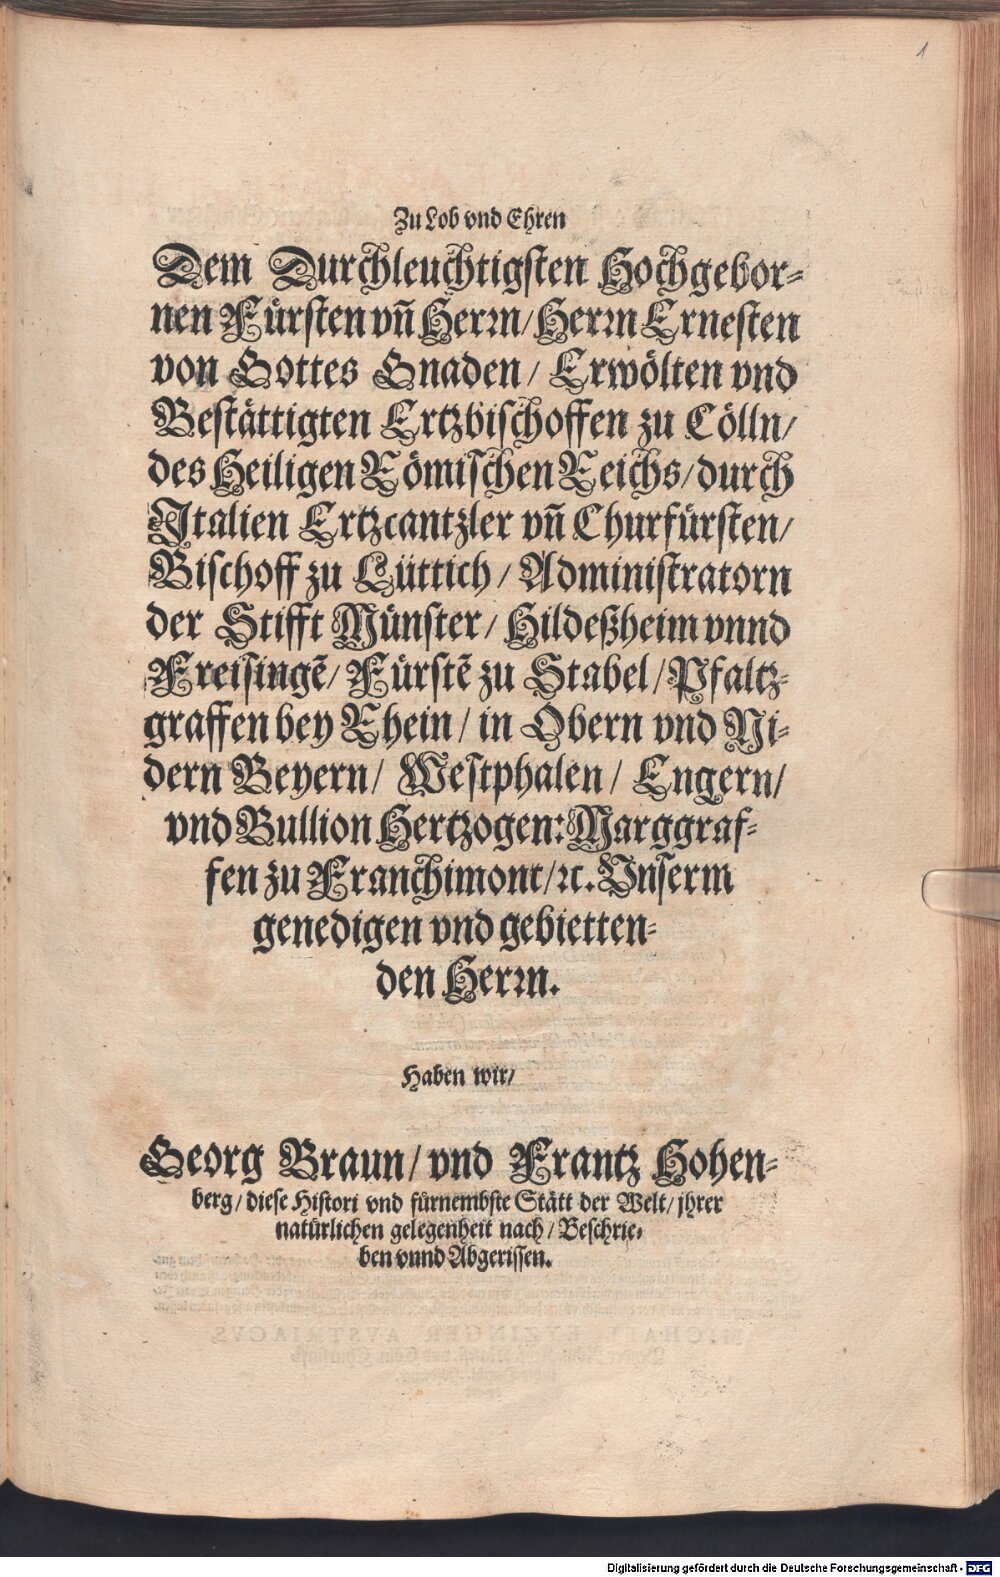 1
Zu Lob vnd Ehren
Dem Durchleuchtigsten Hochgebor-
nen Fürsten vñ Herꝛn/ Herꝛn Ernesten
von Gottes Gnaden/ Erwölten vnd
Bestättigten Ertzbischoffen zu Cölln/
des Heiligen Römischen Reichs/ durch
Italien Ertzcantzler vñ Churfürsten/
Bischoff zu Lüttich/ Administratorn
der Stifft Münster/ Hildeßheim vnnd
Freisingẽ/ Fürstẽ zu Stabel/ Pfaltz-
graffen bey Rhein/ in Obern vnd Ni-
dern Beyern/ Westphalen/ Engern/
vnd Bullion Hertzogen: Marggraf-
fen zu Franchimont/ ꝛc. Vnserm
genedigen vnd gebietten-
den Herꝛn.
Haben wir/
Georg Braun/ vnd Frantz Hohen-
berg/ diese Histori vnd fürnembste Stätt der Welt/ jhrer
natürlichen gelegenheit nach/ Beschrie-
ben vnnd Abgerissen.
Digitalisierung gefördert durch die Deutsche Forschungsgemeinschaft - DFG